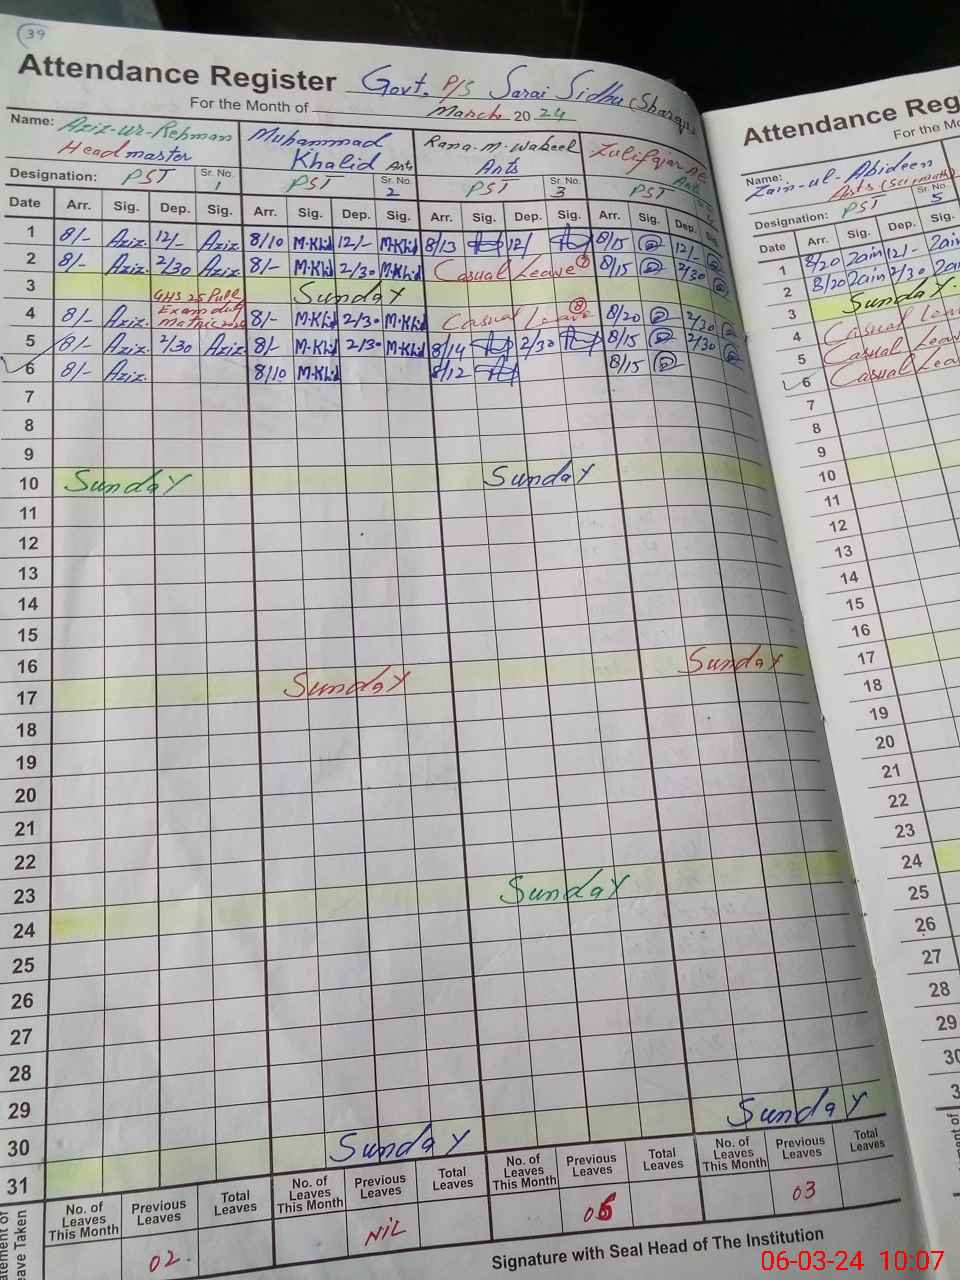 39
Attendance Register Govt. P/S Sarai Sidhu (Sharqi)
For the Month of March 2024
Name: Aziz-ur-Rehman Headmaster
Muhammad Khalid Arts
Rana-M-Wakeel Arts
Designation: PST Sr. No. 1
PST Sr. No. 2
PST Sr. No. 3
PST
Date Arr. Sig. Dep. Sig. Arr. Sig. Dep. Sig. Arr. Sig. Dep. Sig. Arr. Sig. Dep. Sig.
1 8/- Aziz. 12/- Aziz 8/10 M.Khld 12/- M.Khld 8/13 12/ 8/15 12/-
2 8/- Aziz. 2/30 Aziz 8/- M.Khld 2/30 M.Khld Casual Leave 8/15 2/30
3 Sunday
GHS 25 Pull Exam duty matric
4 8/- Aziz. 8/- M.Khld 2/30 M.Khld Casual Leave 8 8/20 2/30
5 8/- Aziz. 2/30 Aziz 8/- M.Khld 2/30 M.Khld 8/14 2/30 8/15 2/30
6 8/- Aziz. 8/10 M.Khld 8/12 8/15
7
8
9
10 Sunday Sunday
11
12
13
14
15
16
17 Sunday Sunday
18
19
20
21
22
23
24 Sunday
25
26
27
28
29
30
31 Sunday Sunday
Leave Taken
No. of Leaves This Month Previous Leaves Total Leaves No. of Leaves This Month Previous Leaves Total Leaves No. of Leaves This Month Previous Leaves Total Leaves No. of Leaves This Month Previous Leaves Total Leaves
02. NIL 06 03
Signature with Seal Head of The Institution
Attendance Reg
For the Mo
Name: Zain-ul-Abideen
Arts (Sci math)
Designation: PST Sr. No. 5
Date Arr. Sig. Dep. Sig.
1 8/20 Zain 12/- Zain
2 8/20 Zain 2/30
3 Sunday.
4 Casual Leav
5 Casual Leav
6 Casual Leav
7
8
9
10
11
12
13
14
15
16
17
18
19
20
21
22
23
24
25
26
27
28
29
30
3
06-03-24 10:07